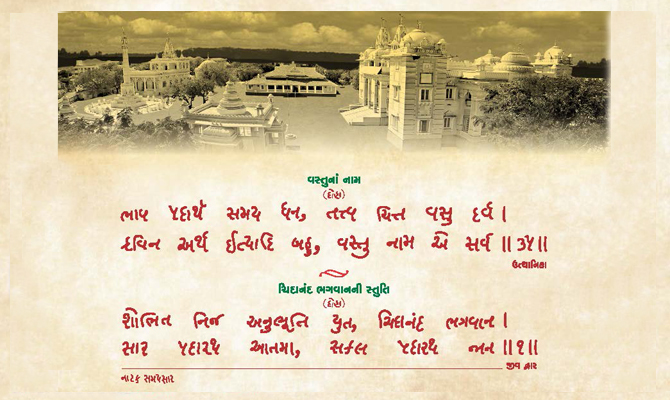 વસ્તુનાં નામ
(દોહા)
ભાવ પદાર્થ સમય ધન, તત્ત્વ ચિત્ત વસુ દર્વ ।
દ્રવિન અર્થ ઈત્યાદિ બહુ, વસ્તુ નામ એ સર્વ ॥ ૩૫॥
ઉત્થાનિકા
ચિદાનંદ ભગવાનની સ્તુતિ
(દોહા)
શોભિત નિજ અનુભૂતિ યુત, ચિદાનંદ ભગવાન ।
સાર પદારથ આતમા, સકલ પદારથ જાન ॥૧॥
જીવ દ્વાર
નાટક સમયસાર